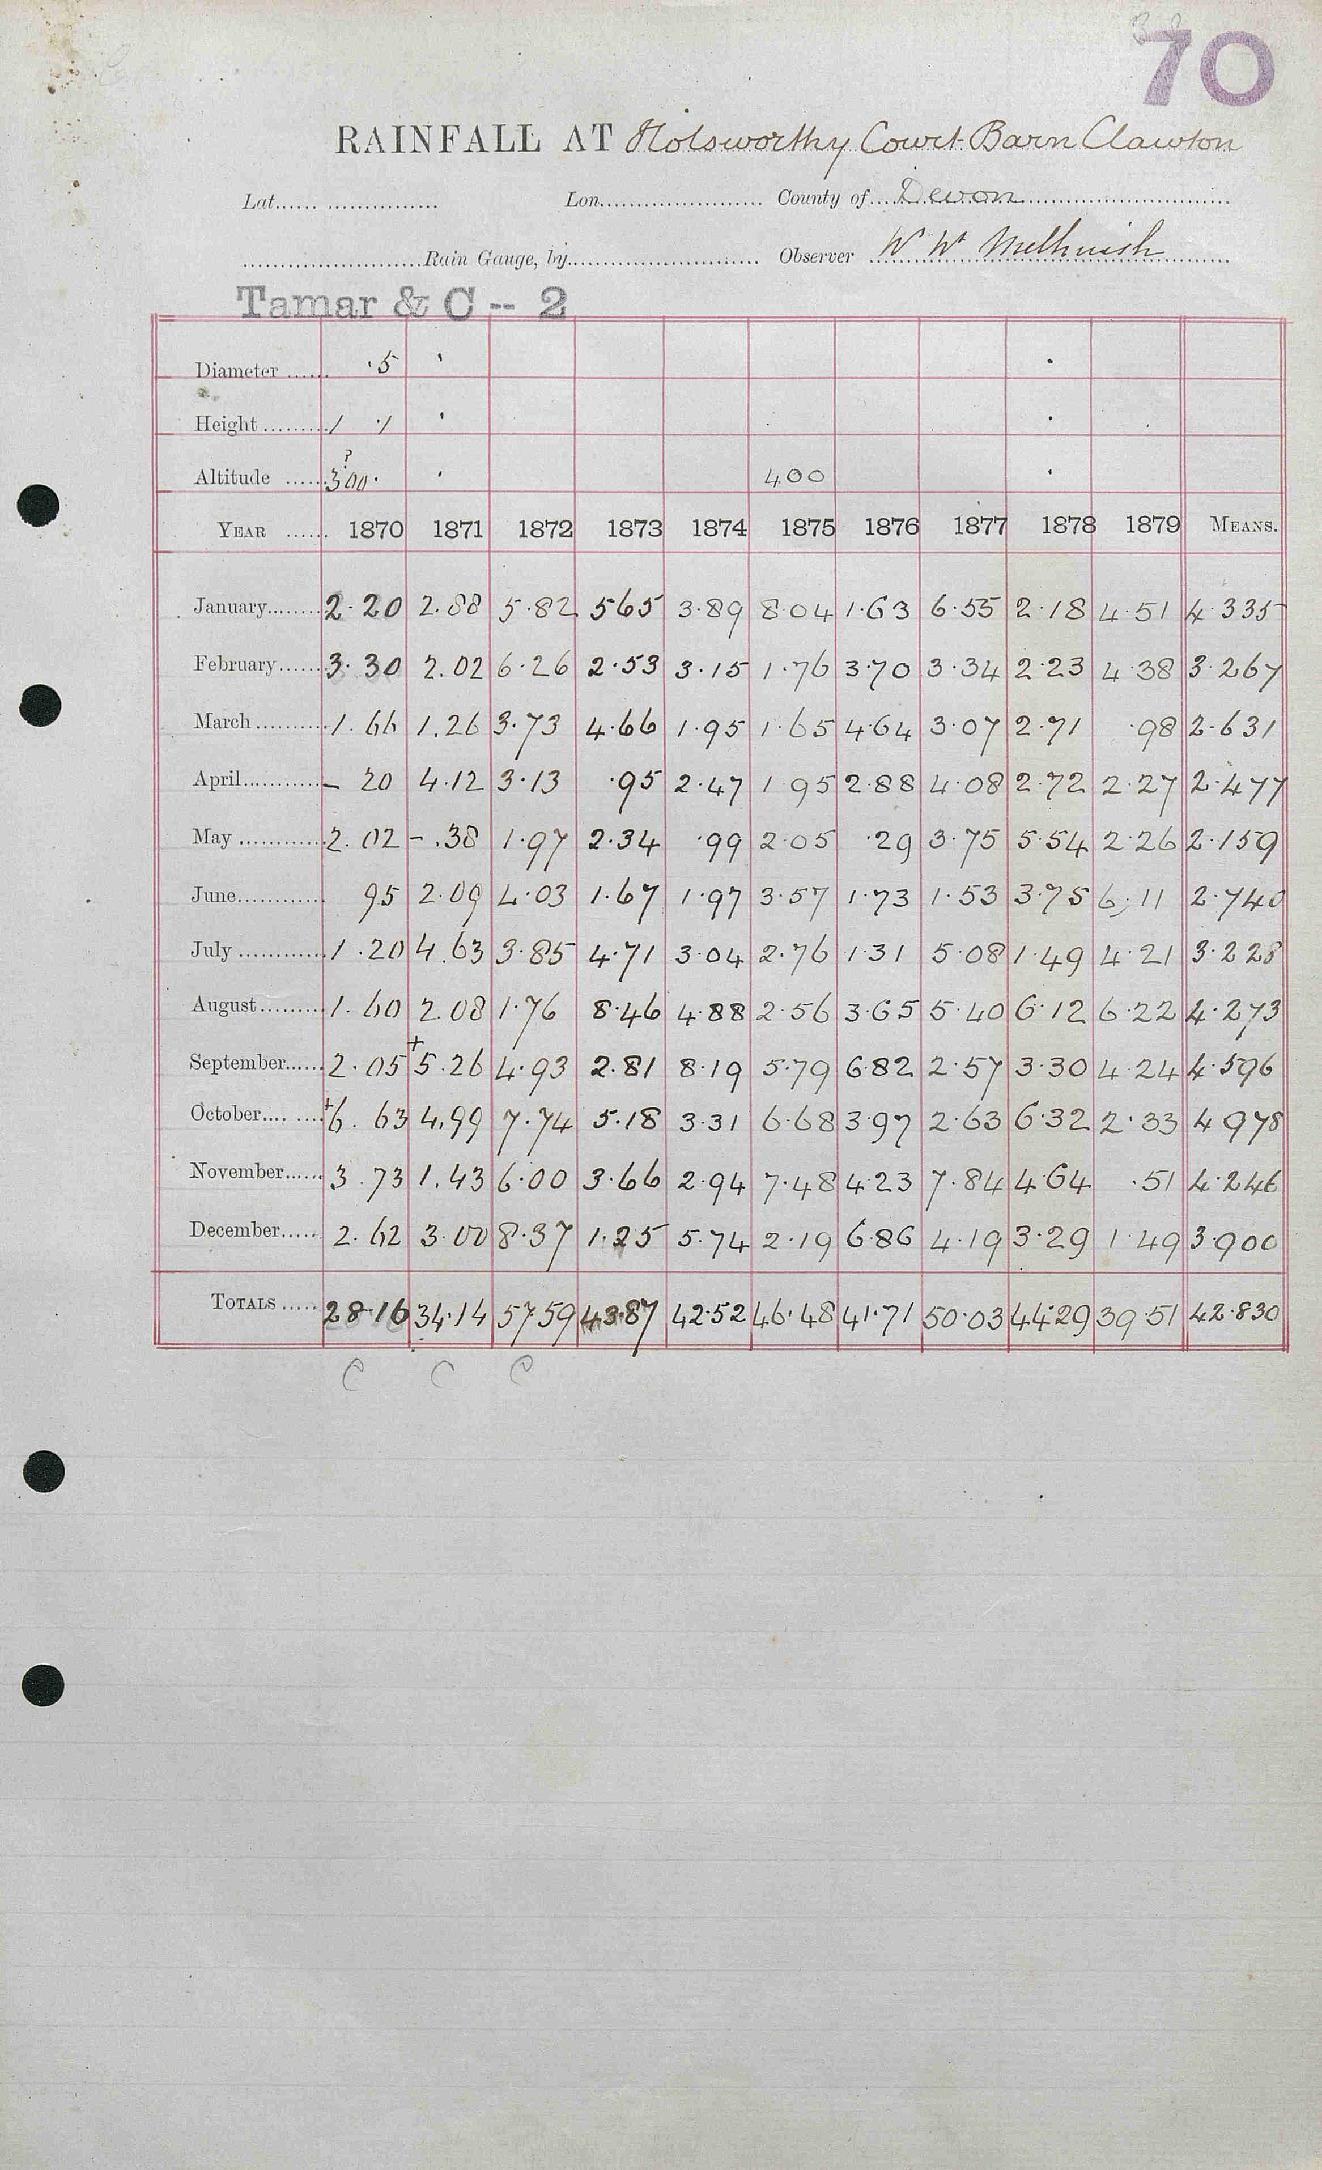 70
RAINFALL AT Holsworthy Court Barn Clawton
Lat...... ................ Lon....................... County of....Devon
........................Rain Gauge, by........................... Observer W W Melhuish
Tamar & C -- 2
Diameter ...... .5
Height ......... 1 .1
Altitude ...... ? 300. 400
YEAR ...... 1870 1871 1872 1873 1874 1875 1876 1877 1878 1879 MEANS.
January........ 2.20 2.88 5.82 5 65 3.89 8.04 1.63 6.55 2.18 4.51 4.335
February....... 3.30 2.02 6.26 2.53 3.15 1.76 3.70 3.34 2.23 4.38 3.267
March .......... 1.66 1.26 3.73 4.66 1.95 1.65 4.64 3.07 2.71 .98 2.631
April............ – 20 4.12 3.13 .95 2.47 1 95 2.88 4.08 2.72 2.27 2.477
May ............ 2.02 – .38 1.97 2.34 .99 2.05 .29 3.75 5.54 2.26 2.159
June............ 95 2.09 4.03 1.67 1.97 3.57 1.73 1.53 3.75 6.11 2.740
July ............ 1.20 4.63 3.85 4.71 3.04 2.76 1.31 5.08 1.49 4.21 3.228
August......... 1.60 2.08 1.76 8.46 4.88 2.56 3.65 5.40 6.12 6.22 4.273
September...... 2.05 +5.26 4.93 2.81 8.19 5.79 6.82 2.57 3.30 4.24 4.596
October.... ...... +6.63 4.99 7.74 5.18 3.31 6.68 3.97 2.63 6.32 2.33 4.978
November...... 3.73 1.43 6.00 3.66 2.94 7.48 4.23 7.84 4.64 .51 4.246
December...... 2.62 3.00 8.37 1.25 5.74 2.19 6.86 4.19 3.29 1.49 3.900
TOTALS ...... 28.16 34.14 57.59 43.87 42.52 46.48 41.71 50.03 44.29 39.51 42.830
C C C